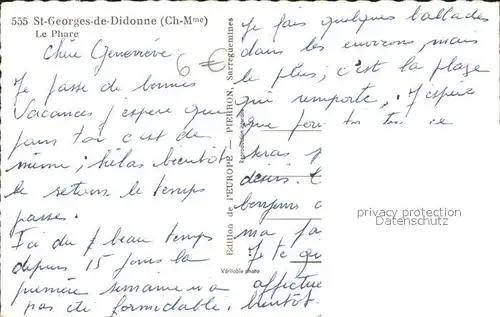 555 St-Georges-de-Didonne (Ch-Mme)
Le Phare
6 €
Chère Geneviève
Je passe de bonnes
Vacances j'espère que
pour toi c'est de
même ; hélas bientôt
le retour le temps
passe.
Ici du beau temps
depuis 15 jours la
première semaine n'a
pas été formidable.
Edition de l'EUROPE — PIERRON, Sarreguemines
Véritable photo
Je fais quelques ballades
dans les environs, mais
le plus, c'est la plage
qui remporte. J'espère
que pour toi ce
seras
désiré.
bonjour a
ma fa
Je te qu
affectue
bientôt.
privacy protection
Datenschutz